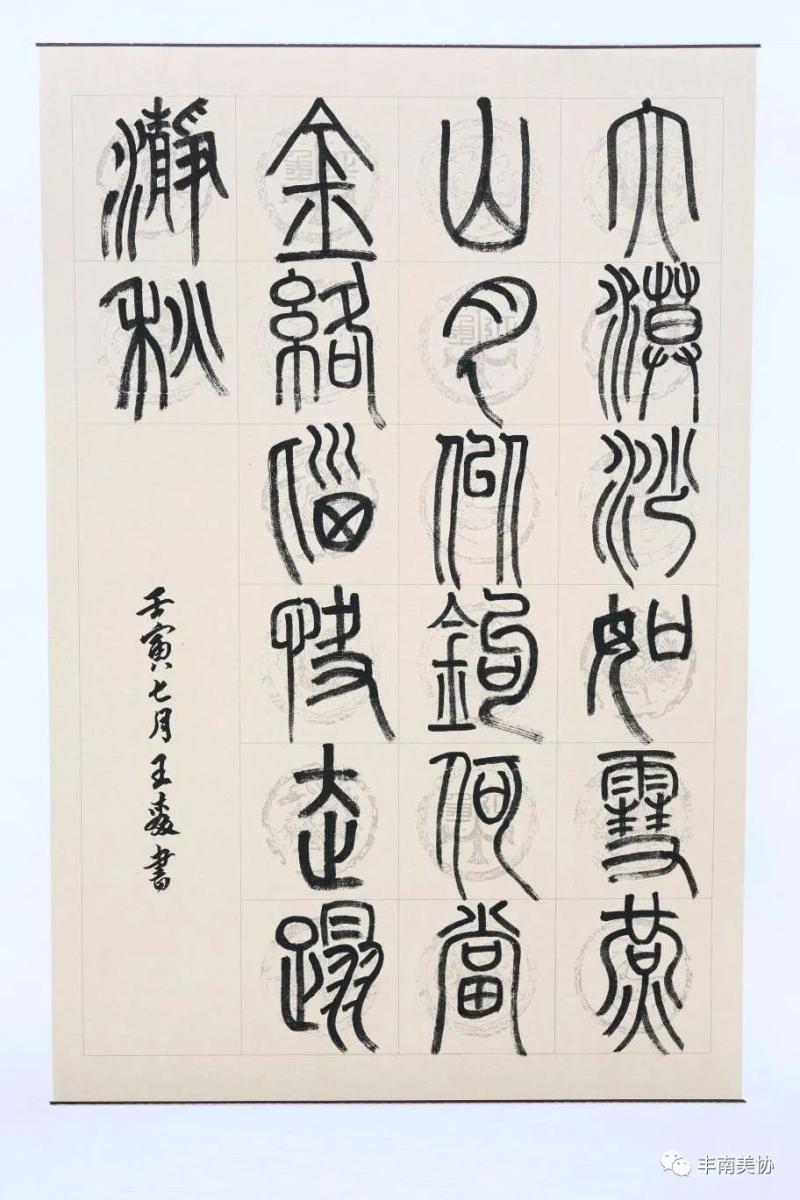 大漠沙如雪燕
山月似鉤何當
金絡腦快走蹋
瀞秋
壬寅七月王書
丰南美协